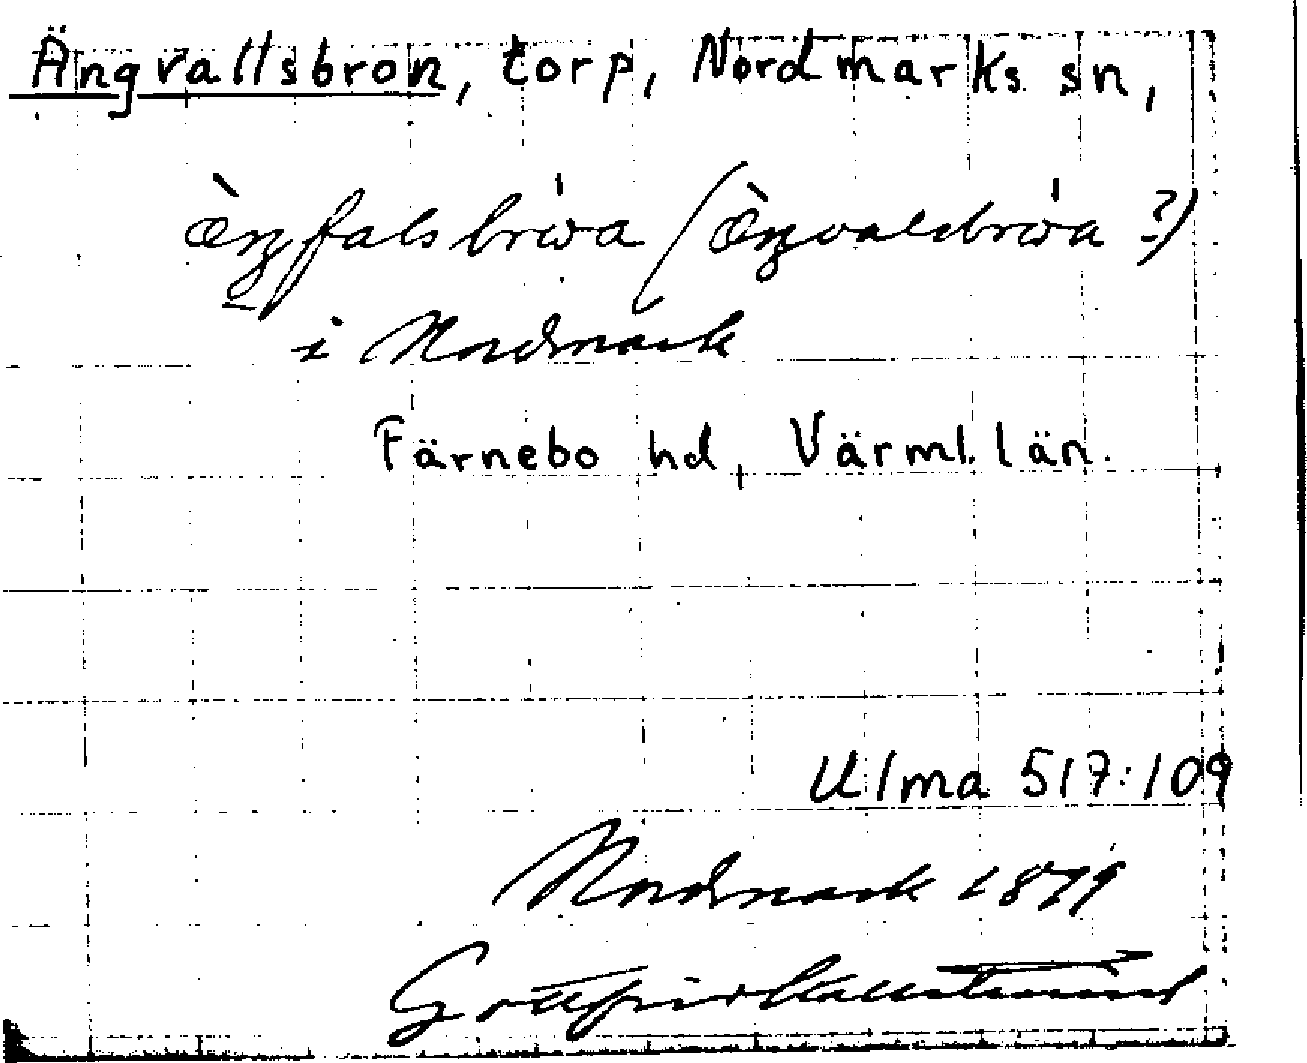 Ängvallsbron, torp, Nordmarks sn,
i Nordmark
Färnebo hd, Värml. län.
Ulma 517:109
Nordmark 1879
Gottfrid Kallstenius